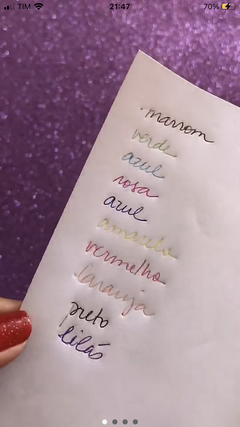 TIM 21:47 70%
marrom
verde
azul
rosa
azul
amarelo
vermelho
laranja
preto
lilás